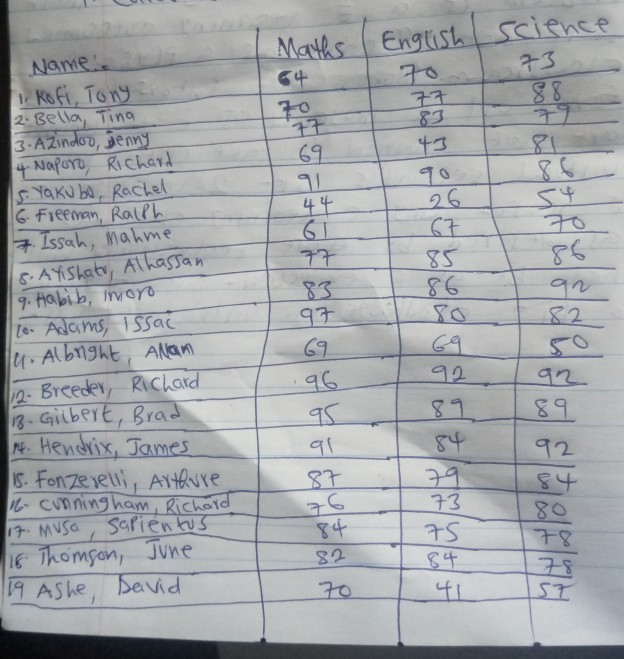 Name:- Maths English Science
1. Kofi, Tony 64 70 73
2. Bella, Tina 70 77 88
3. Azindoo, Jenny 77 83 79
4. Naporo, Richard 69 43 81
5. Yakubu, Rachel 91 90 86
6. Freeman, Ralph 44 26 54
7. Issah, Mahme 61 67 70
8. Ayishatu, Alhassan 77 85 86
9. Habib, 83 86 92
10. Adams, Issac 97 80 82
11. Albright, 69 69 50
12. Breeder, Richard 96 92 92
13. Gilbert, Brad 95 89 89
14. Hendrix, James 91 84 92
15. Fonzerelli, Arthure 87 79 84
16. Cunningham, Richard 76 73 80
17. Musa, Sapientus 84 75 78
18. Thomson, June 82 84 78
19 Ashe, David 70 41 57